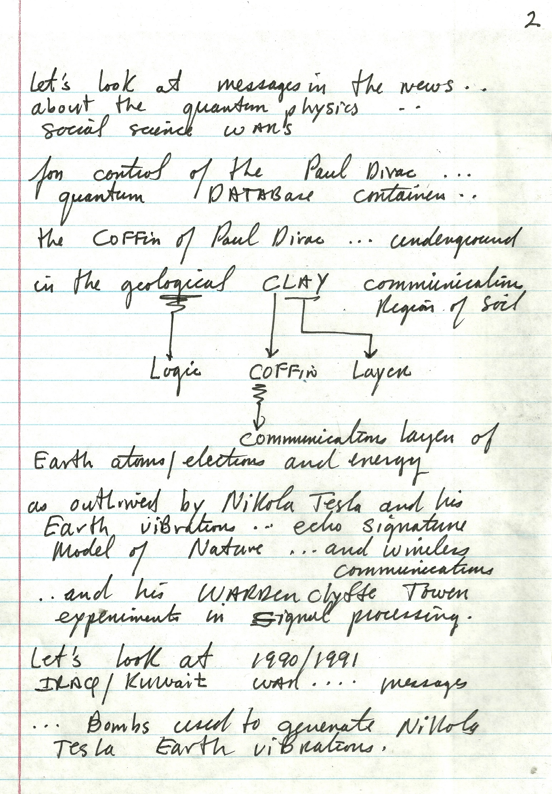 2
Let's look at messages in the news ..
about the quantum physics ..
social science WARS
for control of the Paul Dirac ...
quantum DATABase container ..
the COFFin of Paul Dirac ... underground
in the geological CLAY communication
Region of Soil
Logic COFFin Layer
Communications layer of
Earth atoms/electrons and energy
as outlined by Nikola Tesla and his
Earth vibrations ... echo signature
Model of Nature ... and wireless
communications
.. and his WARDEnclyffe Tower
experiments in Signal processing.
Let's look at 1990/1991
IRAQ/Kuwait WAR .... messages
... Bombs used to generate Nikola
Tesla Earth vibrations.